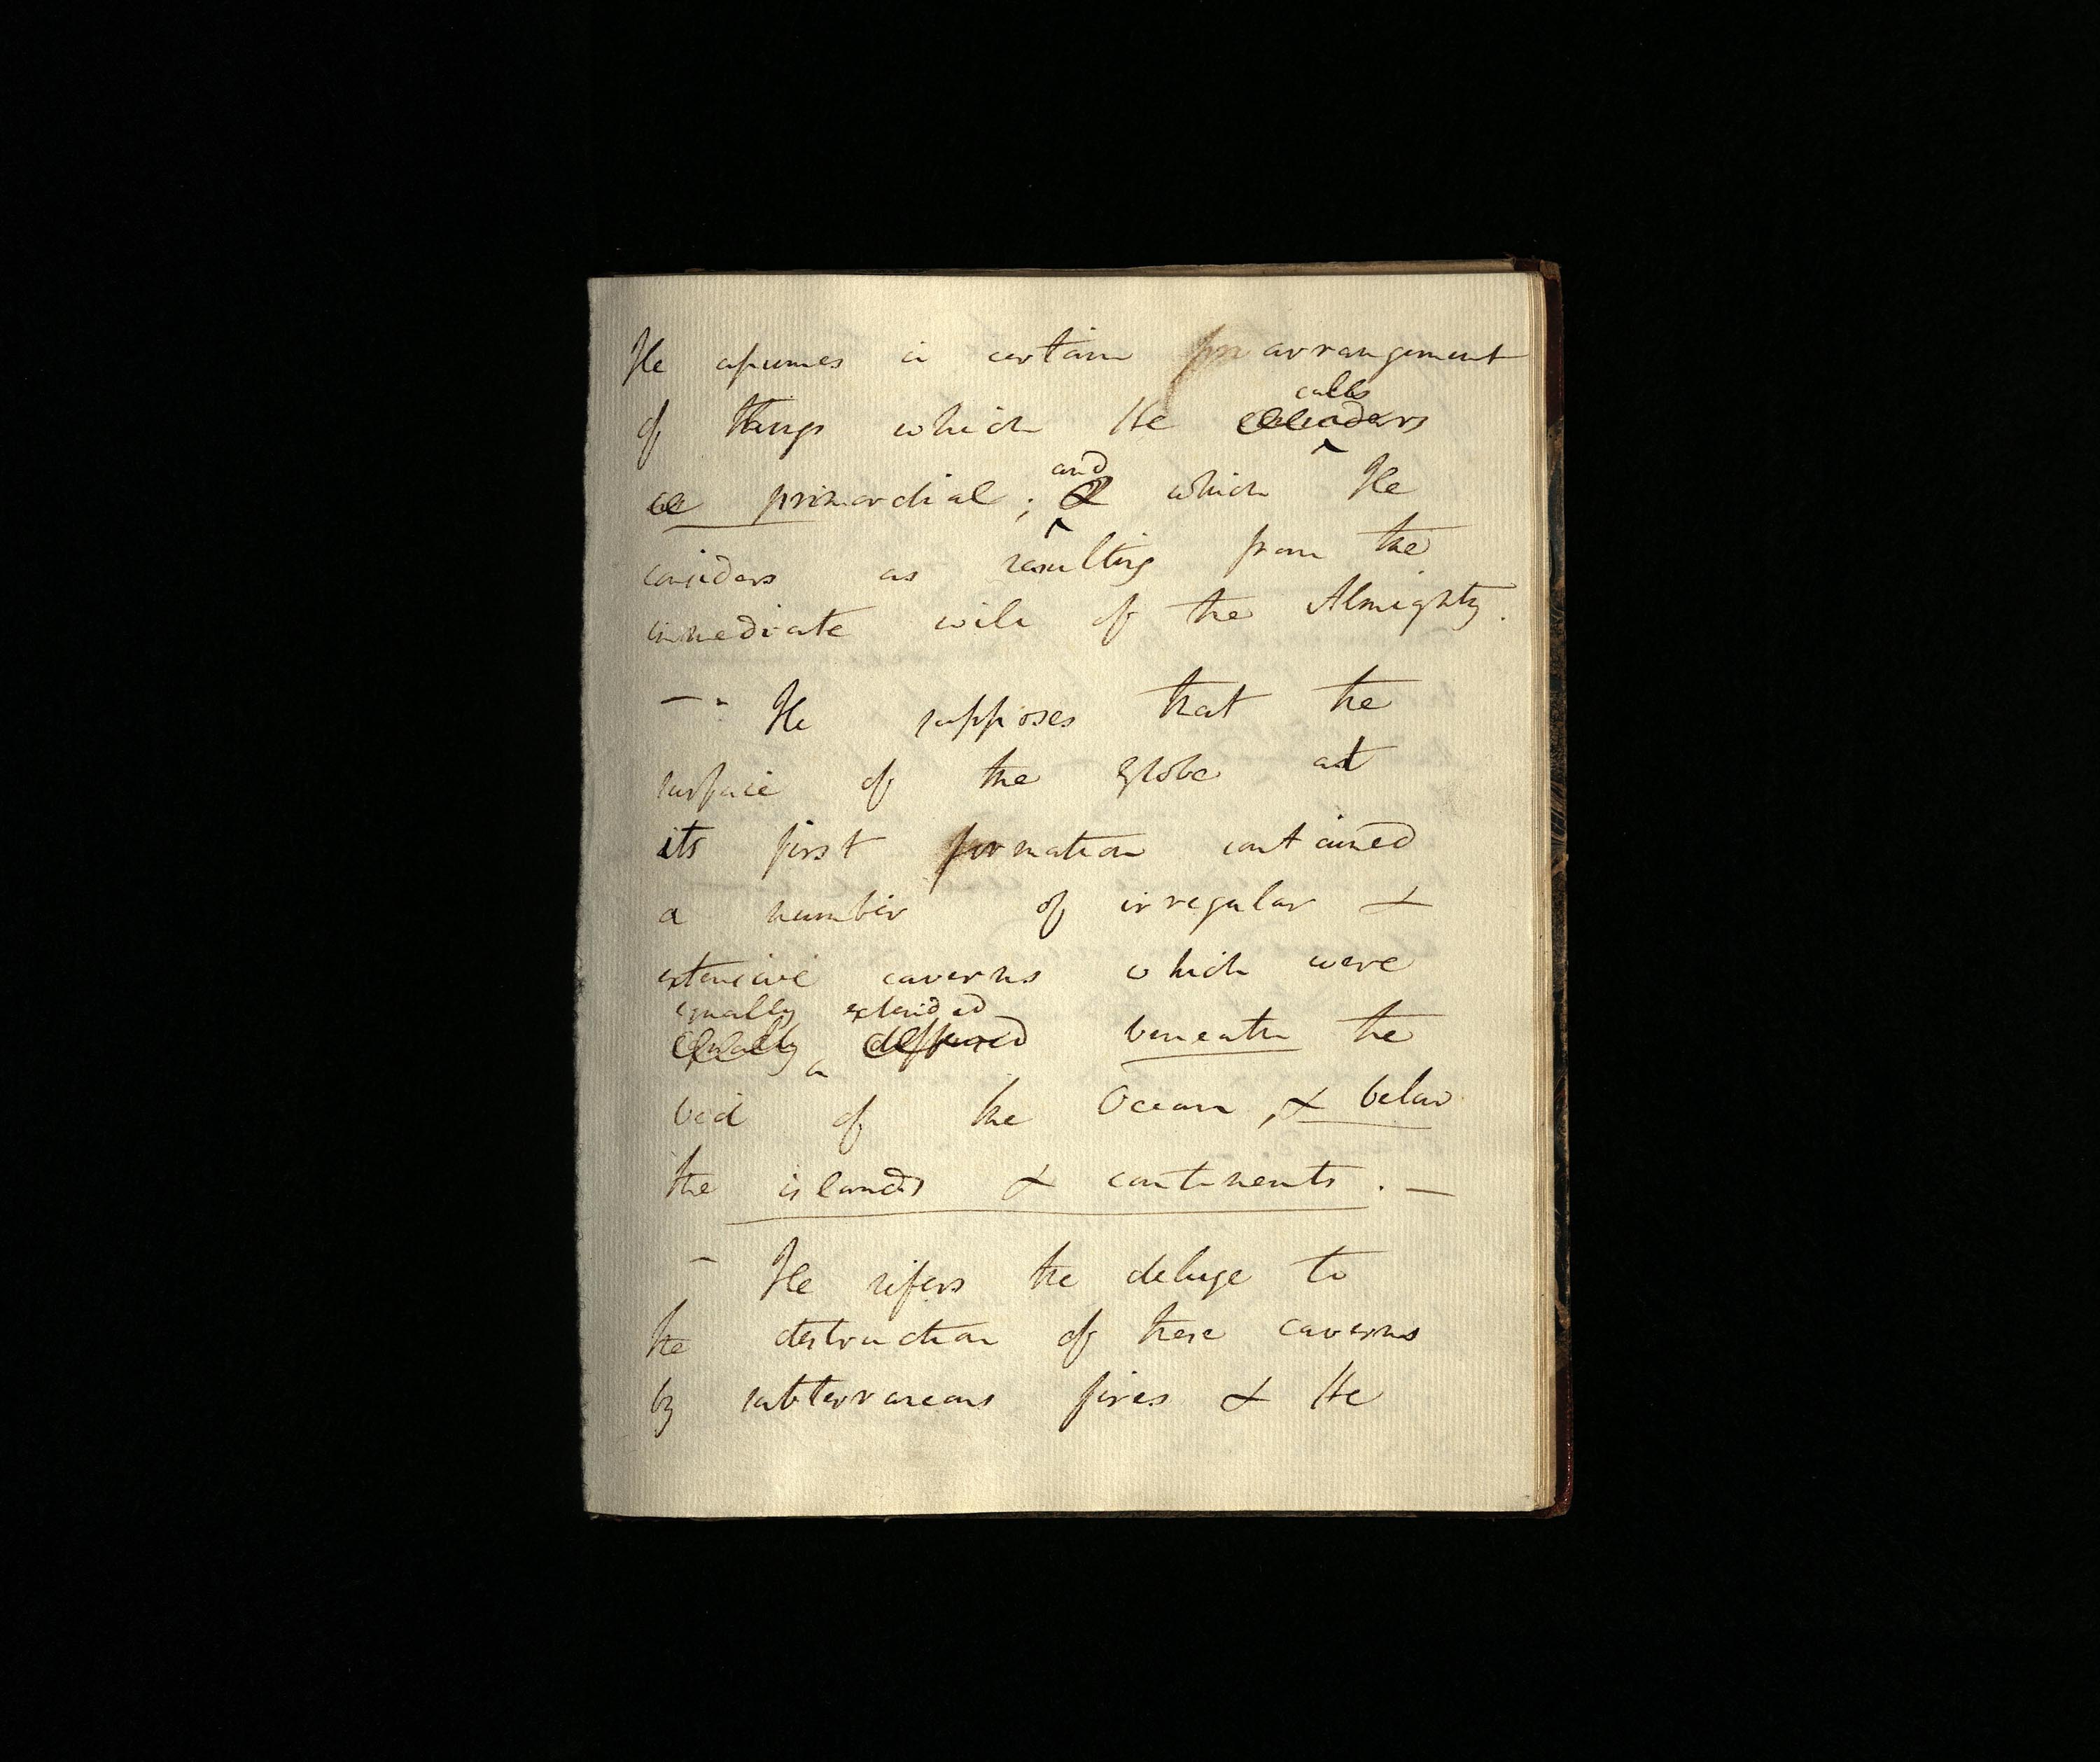 He assumes a certain arrangement
of things which He calls
primordial; and which He
considers as resulting from the
immediate will of the Almighty.
— - He supposes that the
surface of the globe at
its first formation contained
a number of irregular &
extensive caverns which were
equally extended
equally diffused beneath the
bed of the Ocean, & below
the islands & continents. —
— He refers the deluge to
the destruction of these caverns
by subterraneous fires & He